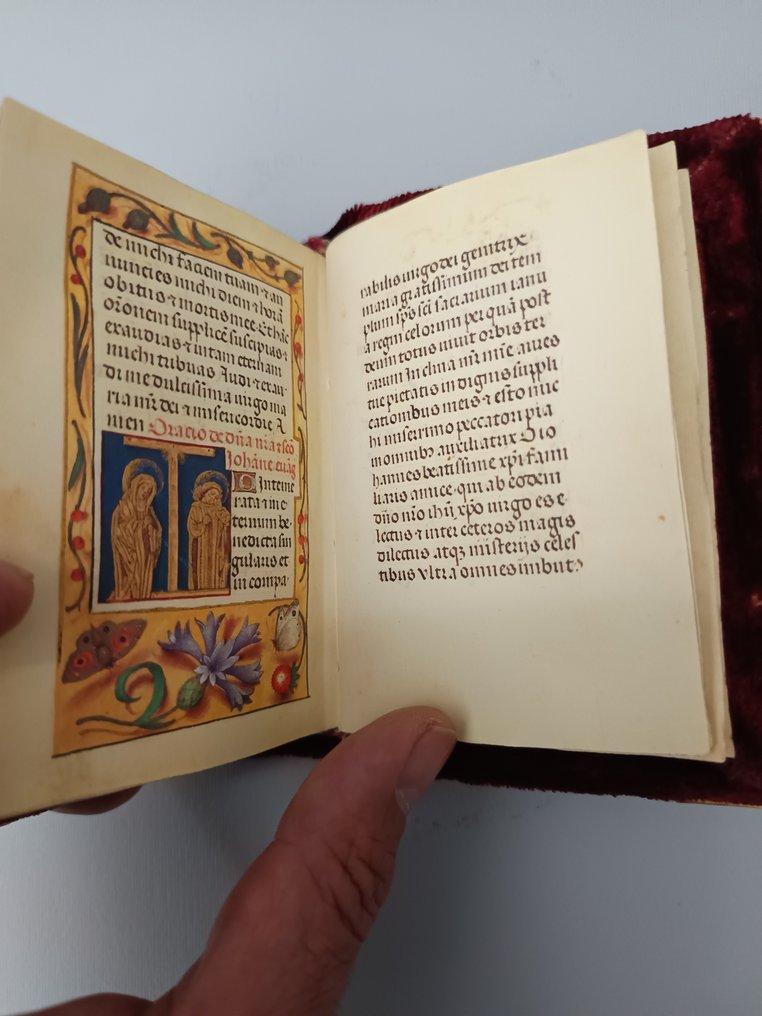 de michi faciem tuam ⁊ an
nuncies michi diem ⁊ horā
obitus ⁊ mortis mee. Et hāc
or̄onem supplicē suscipias ⁊
exaudias ⁊ uitam eternam
michi tribuas Audi ⁊ exau
di me dulcissima uirgo ma
ria mr̄ dei ⁊ misericordie A
men Oracio de dn̄a nr̄a ⁊ scō
Johāne euāg
O Inteme
rata ⁊ ine
ternum be
nedicta sin
gularis et
in compa
rabilis uirgo dei genitrix
maria gratissimum dei tem
plum sp̄s sc̄i sacrarium ianu
a regni celorum per quā post
deum totus uiuit orbis ter
rarum Inclina mr̄ mīe aures
tue pietatis indignis suppli
cationibus meis ⁊ esto mic
hi miserrimo peccatori pia
in omnibꝫ auxiliatrix O io
hannes beatissime xp̄i fami
liaris amice. qui ab eodem
dn̄o nr̄o ihū xp̄o uirgo es e
lectus ⁊ inter ceteros magis
dilectus atqꝫ misterijs celes
tibus vltra omnes imbutꝰ